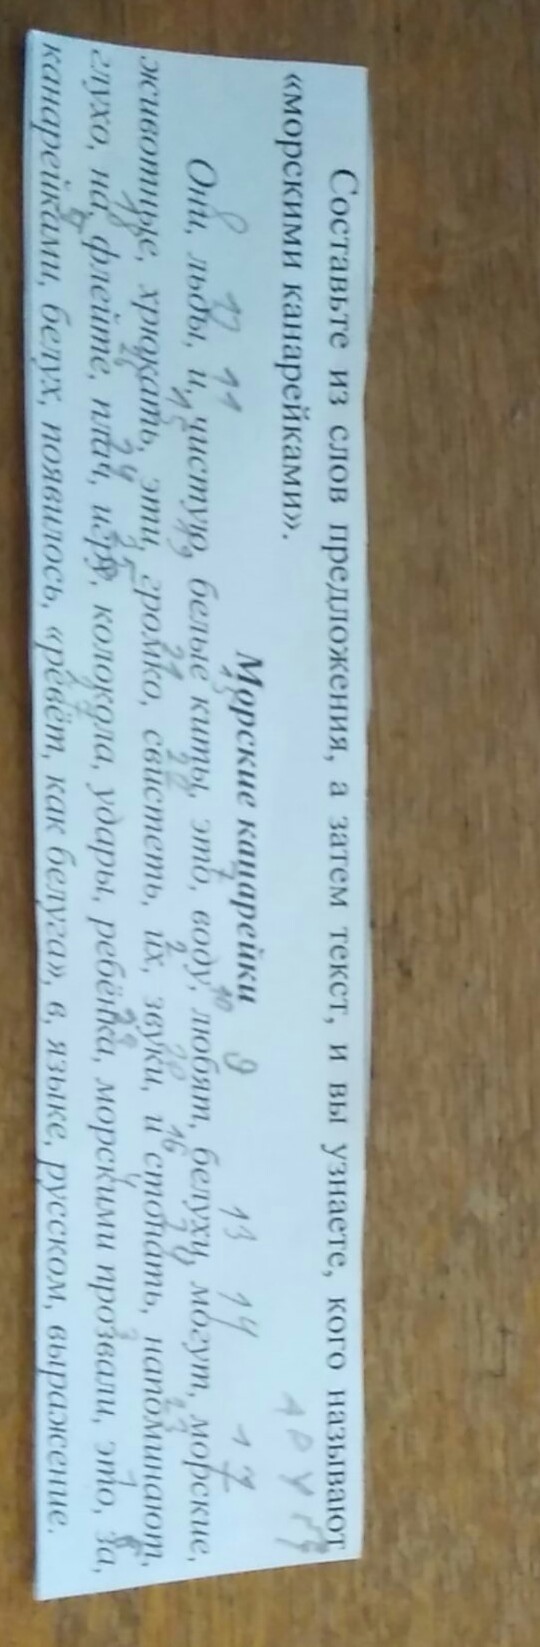 Составьте из слов предложения, а затем текст, и вы узнаете, кого называют
«морскими канарейками».
Морские канарейки
Они, льды, и, чистую, белые киты, это, воду, любят, белухи, могут, морские,
животные, хрюкать, эти, громко, свистеть, их, звуки, и стонать, напоминают,
глухо, на, флейте, плач, игру, колокола, удары, ребёнка, морскими прозвали, это, за,
канарейками, белух, появилось, «ревёт, как белуга», в, языке, русском, выражение.